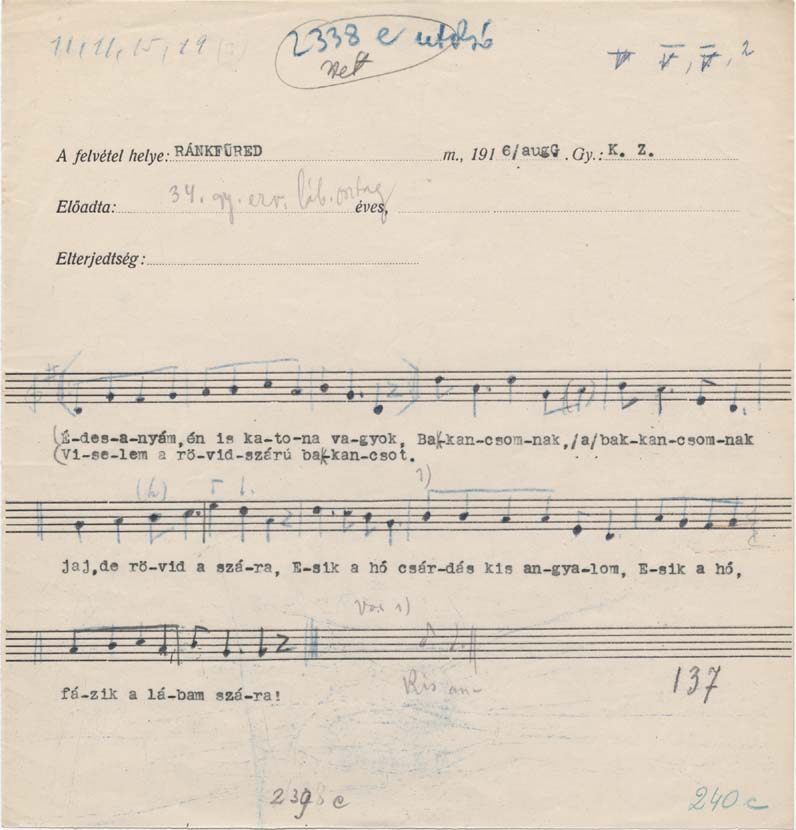 11, 11, 15, 19
2338 e utolsó
V V, V, 2
A felvétel helye: RÁNKFÜRED m., 191 6/augG . Gy.: K. Z.
Előadta: 34. gy. ezr. éves,
Elterjedtség:
É-des-a-nyám, én is ka-to-na va-gyok, Bak-kan-csom-nak,/a/bak-kan-csom-nak
Vi-se-lem a rö-vid-szárú bak-kan-csot.
1)
jaj, de rö-vid a szá-ra, E-sik a hó csár-dás kis an-gya-lom, E-sik a hó,
Var 1)
Kis an-
137
fá-zik a lá-bam szá-ra!
239 e
240 c